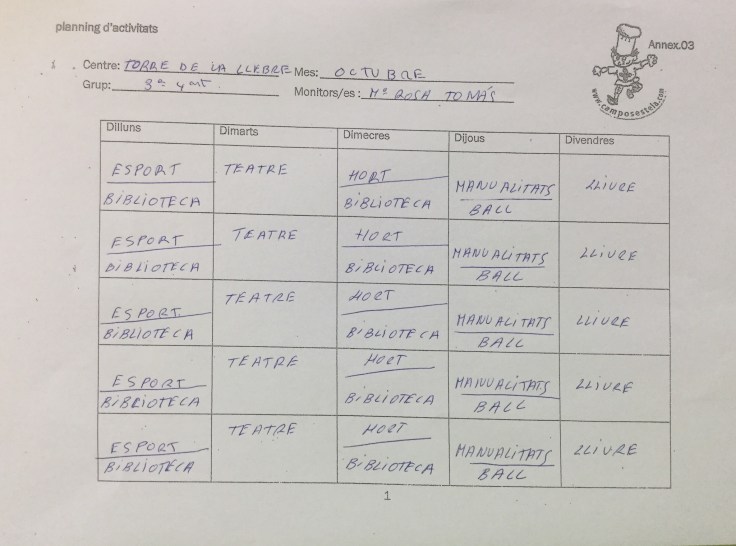 planning d'activitats
Annex.03
Centre: TORRE DE LA LLEBRE Mes: OCTUBRE
Grup: 3er 4art Monitors/es: Mª ROSA TOMÁS
www.camposestela.com
Dilluns Dimarts Dimecres Dijous Divendres
ESPORT TEATRE HORT MANUALITATS LLIURE
BIBLIOTECA BIBLIOTECA BALL
ESPORT TEATRE HORT MANUALITATS LLIURE
BIBLIOTECA BIBLIOTECA BALL
ESPORT TEATRE HORT MANUALITATS LLIURE
BIBLIOTECA BIBLIOTECA BALL
ESPORT TEATRE HORT MANUALITATS LLIURE
BIBLIOTECA BIBLIOTECA BALL
ESPORT TEATRE HORT MANUALITATS LLIURE
BIBLIOTECA BIBLIOTECA BALL
1